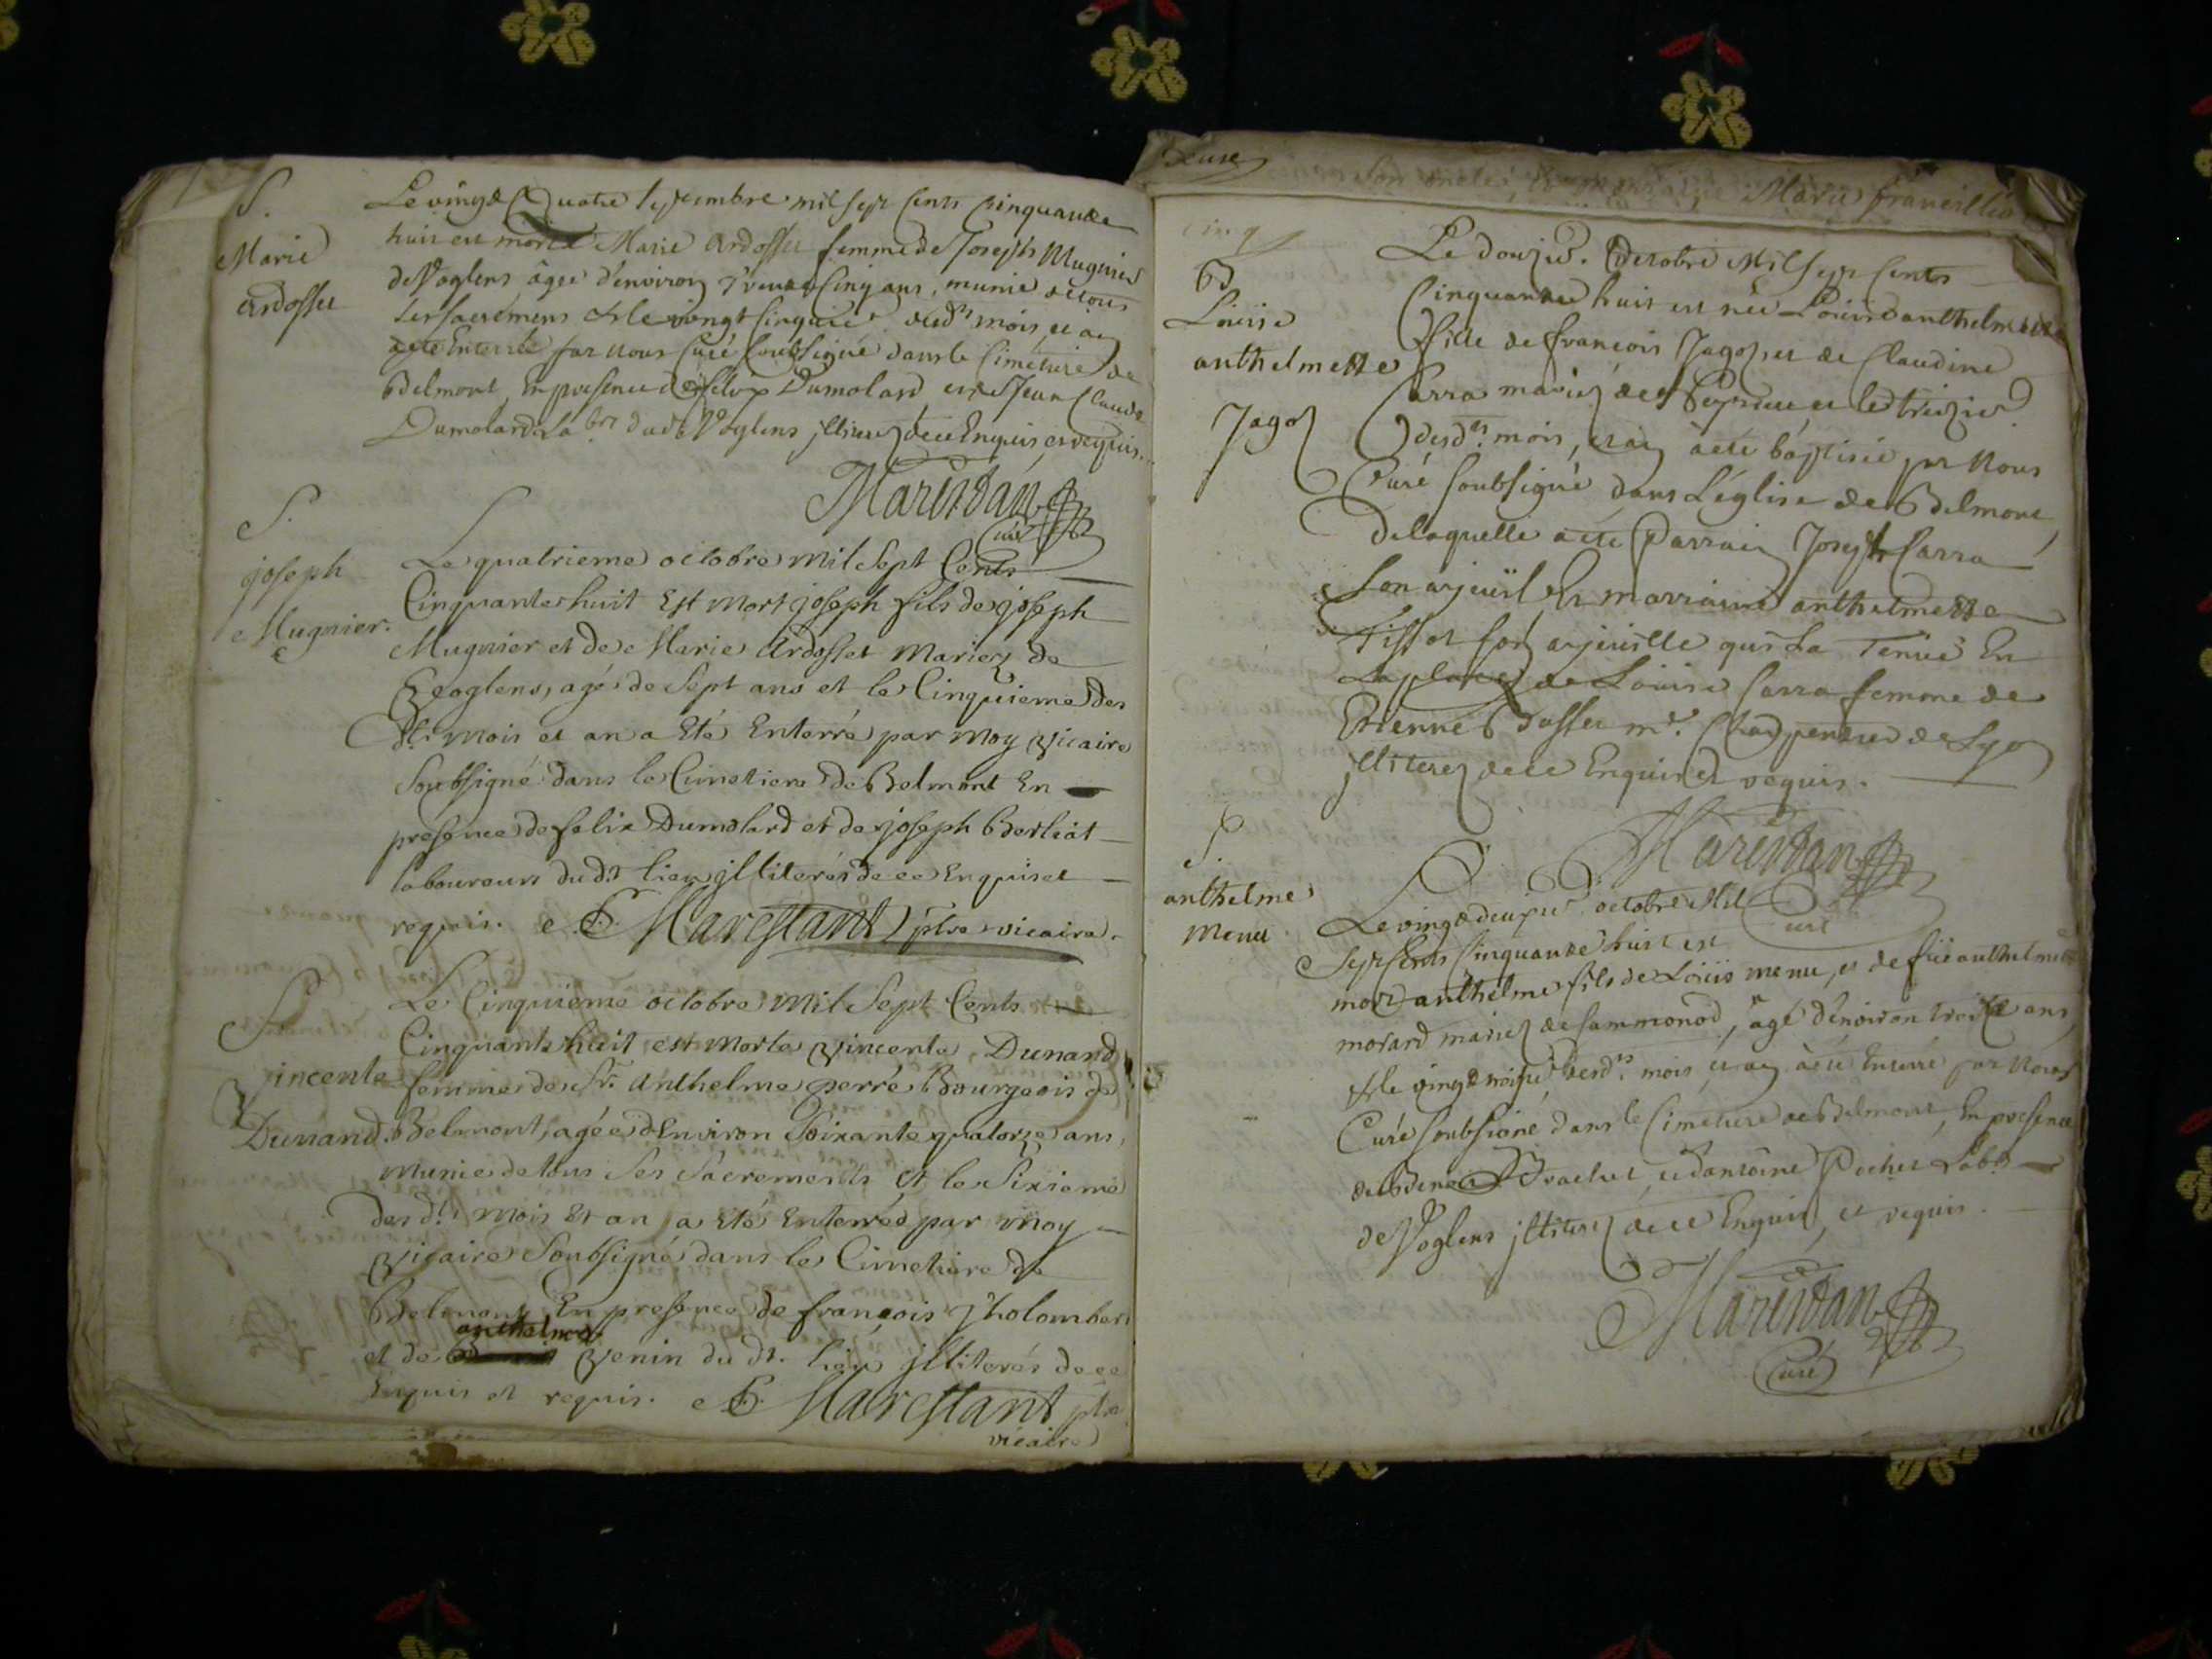 S.
Marie
Ardosset
Le vingt Quatre septembre mil sept cents cinquante
huit est morte Marie Ardosset femme de Joseph Mugnier
de Voglens âgée d'environ trente Cinq ans, munie de tous
ses sacremens & le vingt Cinquie. desdts mois et an
a eté Enterrée par nous Curé soubsigné dans le Cimetiere de
Belmont, En presence de felix Dumolard et de Jean Claude
Dumolard Labrs dudt Voglens jlliterez de ce Enquis et requis.
Marestan
Curé
S.
joseph
Mugnier.
Le quatrieme octobre mil Sept Cents
Cinquante huit Est mort joseph fils de joseph
Mugnier et de Marie Ardosset Mariez de
Veoglens, agé de Sept ans et le Cinquieme des
dts. mois et an a Eté Enterré par moy vicaire
Soubsigné dans le Cimetiere de Belmont En
presence de felix Dumolard et de joseph Berliat
laboureurs du dt lieu jlliterés de ce Enquis et
requis. Marestant ptre vicaire.
S
Vincente
Dunand.
Le Cinquieme octobre mil Sept Cents
Cinquante huit est morte vincente Dunand
femme de Sr. Anthelme perré Bourgeois de
Belmont, agée dEnviron Soixante quatorze ans,
munie de tous Ses Sacrements Et le Sixieme
des dts mois Et an a Eté Enterrée par moy
vicaire Soubsigné dans le Cimetiere de
Belmont En presence de françois Jholombert
anthelme
et de venin du dt. lieu jlliterés de ce
Enquis et requis. Marestant ptre
vicaire
Marie
cinq
B
Louise
anthelmette
Jagoz
Le douzie. Octobre Mil sept cents
Cinquante huit est née Louise anthelmette
fille de françois Jagoz, et de Claudine
Carra mariez de et le treizie
desdts mois, et an a eté baptisée par Nous
Curé soubsigné dans L'église de Belmont,
de laquelle a eté Parrain Joseph Carra
son ayeuil Et marraine anthelmette
Tissot son ayeuille qui La Tenüe En
La place de Louise Carra femme de
Etienne Bosset mr. Charpentier de Lyon
jlliterez de ce Enquis et requis.
Marestan
Curé
S.
anthelme
Menu
Le vingt deuxie octobre Mil
Sept Cents Cinquante huit est
mort anthelme fils de Loüis menu, et de füe anthelmette
morard mariez de sammonod, agé d'environ treize ans,
& le vingt troisie desdts mois et an a eté Enterré par Nous
Curé soubsigné dans le Cimetiere de Belmont, En presence
de Brachet, et d'antoine Pochet Labrs
de Voglens jlliterez de ce Enquis, et requis.
Marestan
Curé